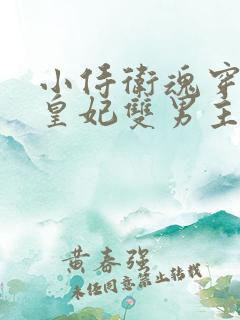 小侍衛魂穿
皇妃雙男主
黄春强
未经同意禁止转载